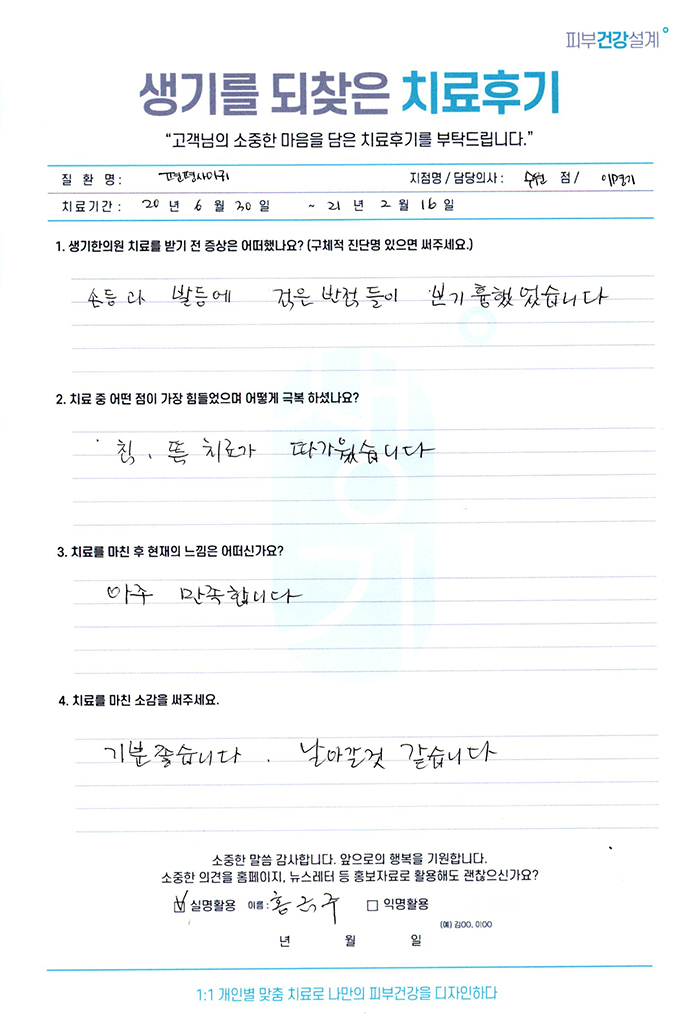 피부건강설계
생기를 되찾은 치료후기
“고객님의 소중한 마음을 담은 치료후기를 부탁드립니다.”
질 환 명 : 편평사마귀 지점명 / 담당의사 : 수원 점 /
치료기간 : 20 년 6 월 30 일 ~ 21 년 2 월 16 일
1. 생기한의원 치료를 받기 전 증상은 어떠했나요? (구체적 진단명 있으면 써주세요.)
손등과 발등에 적은 반점들이 보기 흉했었습니다
2. 치료 중 어떤 점이 가장 힘들었으며 어떻게 극복 하셨나요?
침, 뜸 치료가 따가웠습니다
3. 치료를 마친 후 현재의 느낌은 어떠신가요?
아주 만족합니다
4. 치료를 마친 소감을 써주세요.
기분좋습니다. 날아갈것 같습니다
소중한 말씀 감사합니다. 앞으로의 행복을 기원합니다.
소중한 의견을 홈페이지, 뉴스레터 등 홍보자료로 활용해도 괜찮으신가요?
실명활용 이름 : 홍 익명활용
(예) 김OO, 이OO
년 월 일
1:1 개인별 맞춤 치료로 나만의 피부건강을 디자인하다
생기